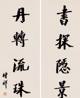 書探隱景
丹轉流珠